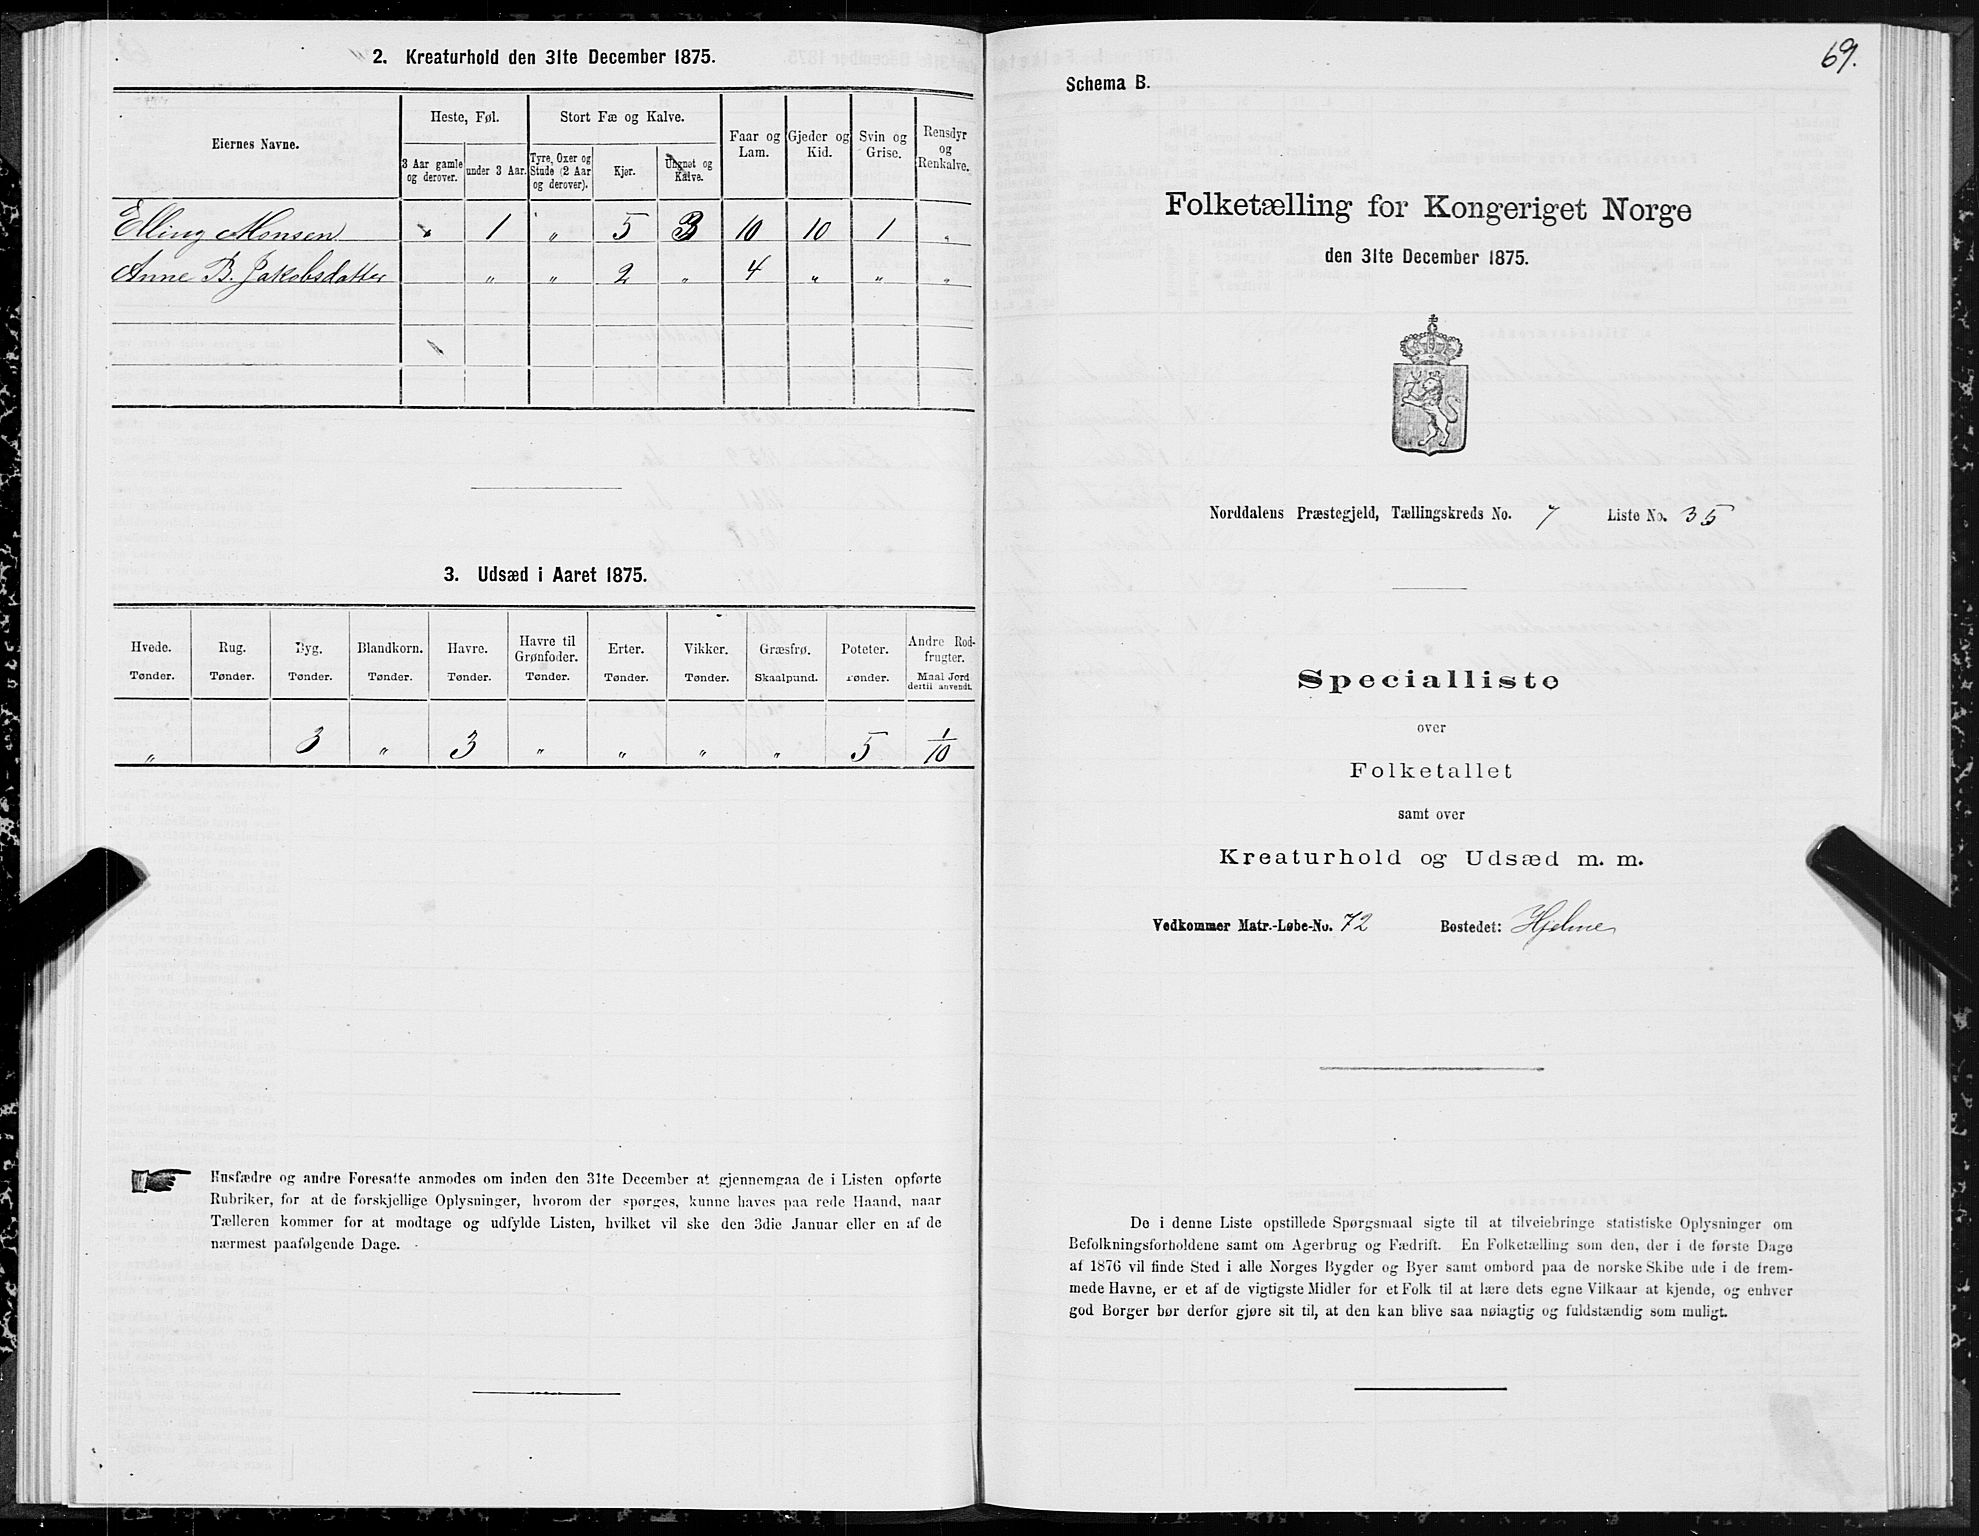 2. Kreaturhold den 31te December 1875.
Eiernes Navne.
Heste, Føl.
Stort Fæ og Kalve.
Faar og Lam.
Gjeder og Kid.
Svin og Grise.
Rensdyr og Renkalve.
3 Aar gamle og derover.
under 3 Aar.
Tyre, Oxer og Stude (2 Aar og derover).
Kjør.
Ungnet og Kalve.
Elling Monsen 1 „ 5 3 10 10 1 „
Anne B. Jakobsdatter „ „ 2 „ 4 „ „ „
3. Udsæd i Aaret 1875.
Hvede. Rug. Byg. Blandkorn. Havre. Havre til Grønfoder. Erter. Vikker. Græsfrø. Poteter. Andre Rodfrugter.
Tønder. Tønder. Tønder. Tønder. Tønder. Tønder. Tønder. Tønder. Skaalpund. Tønder. Maal Jord dertil anvendt.
„ 3 „ 3 „ „ „ „ 5 1/10
Husfædre og andre Foresatte anmodes om inden den 31te December at gjennemgaa de i Listen opførte
Rubriker, for at de forskjellige Oplysninger, hvorom der spørges, kunne haves paa rede Haand, naar
Tælleren kommer for at modtage og udfylde Listen, hvilket vil ske den 3die Januar eller en af de
nærmest paafølgende Dage.
69.
Schema B.
Folketælling for Kongeriget Norge
den 31te December 1875.
Norddalens Præstegjeld, Tællingskreds No. 7 Liste No. 35
Specialliste
over
Folketallet
samt over
Kreaturhold og Udsæd m. m.
Vedkommer Matr.-Løbe-No. 72 Bostedet: Hjelme
De i denne Liste opstillede Spørgsmaal sigte til at tilveiebringe statistiske Oplysninger om
Befolkningsforholdene samt om Agerbrug og Fædrift. En Folketælling som den, der i de første Dage
af 1876 vil finde Sted i alle Norges Bygder og Byer samt ombord paa de norske Skibe ude i de frem-
mede Havne, er et af de vigtigste Midler for et Folk til at lære dets egne Vilkaar at kjende, og enhver
god Borger bør derfor gjøre sit til, at den kan blive saa nøiagtig og fuldstændig som muligt.